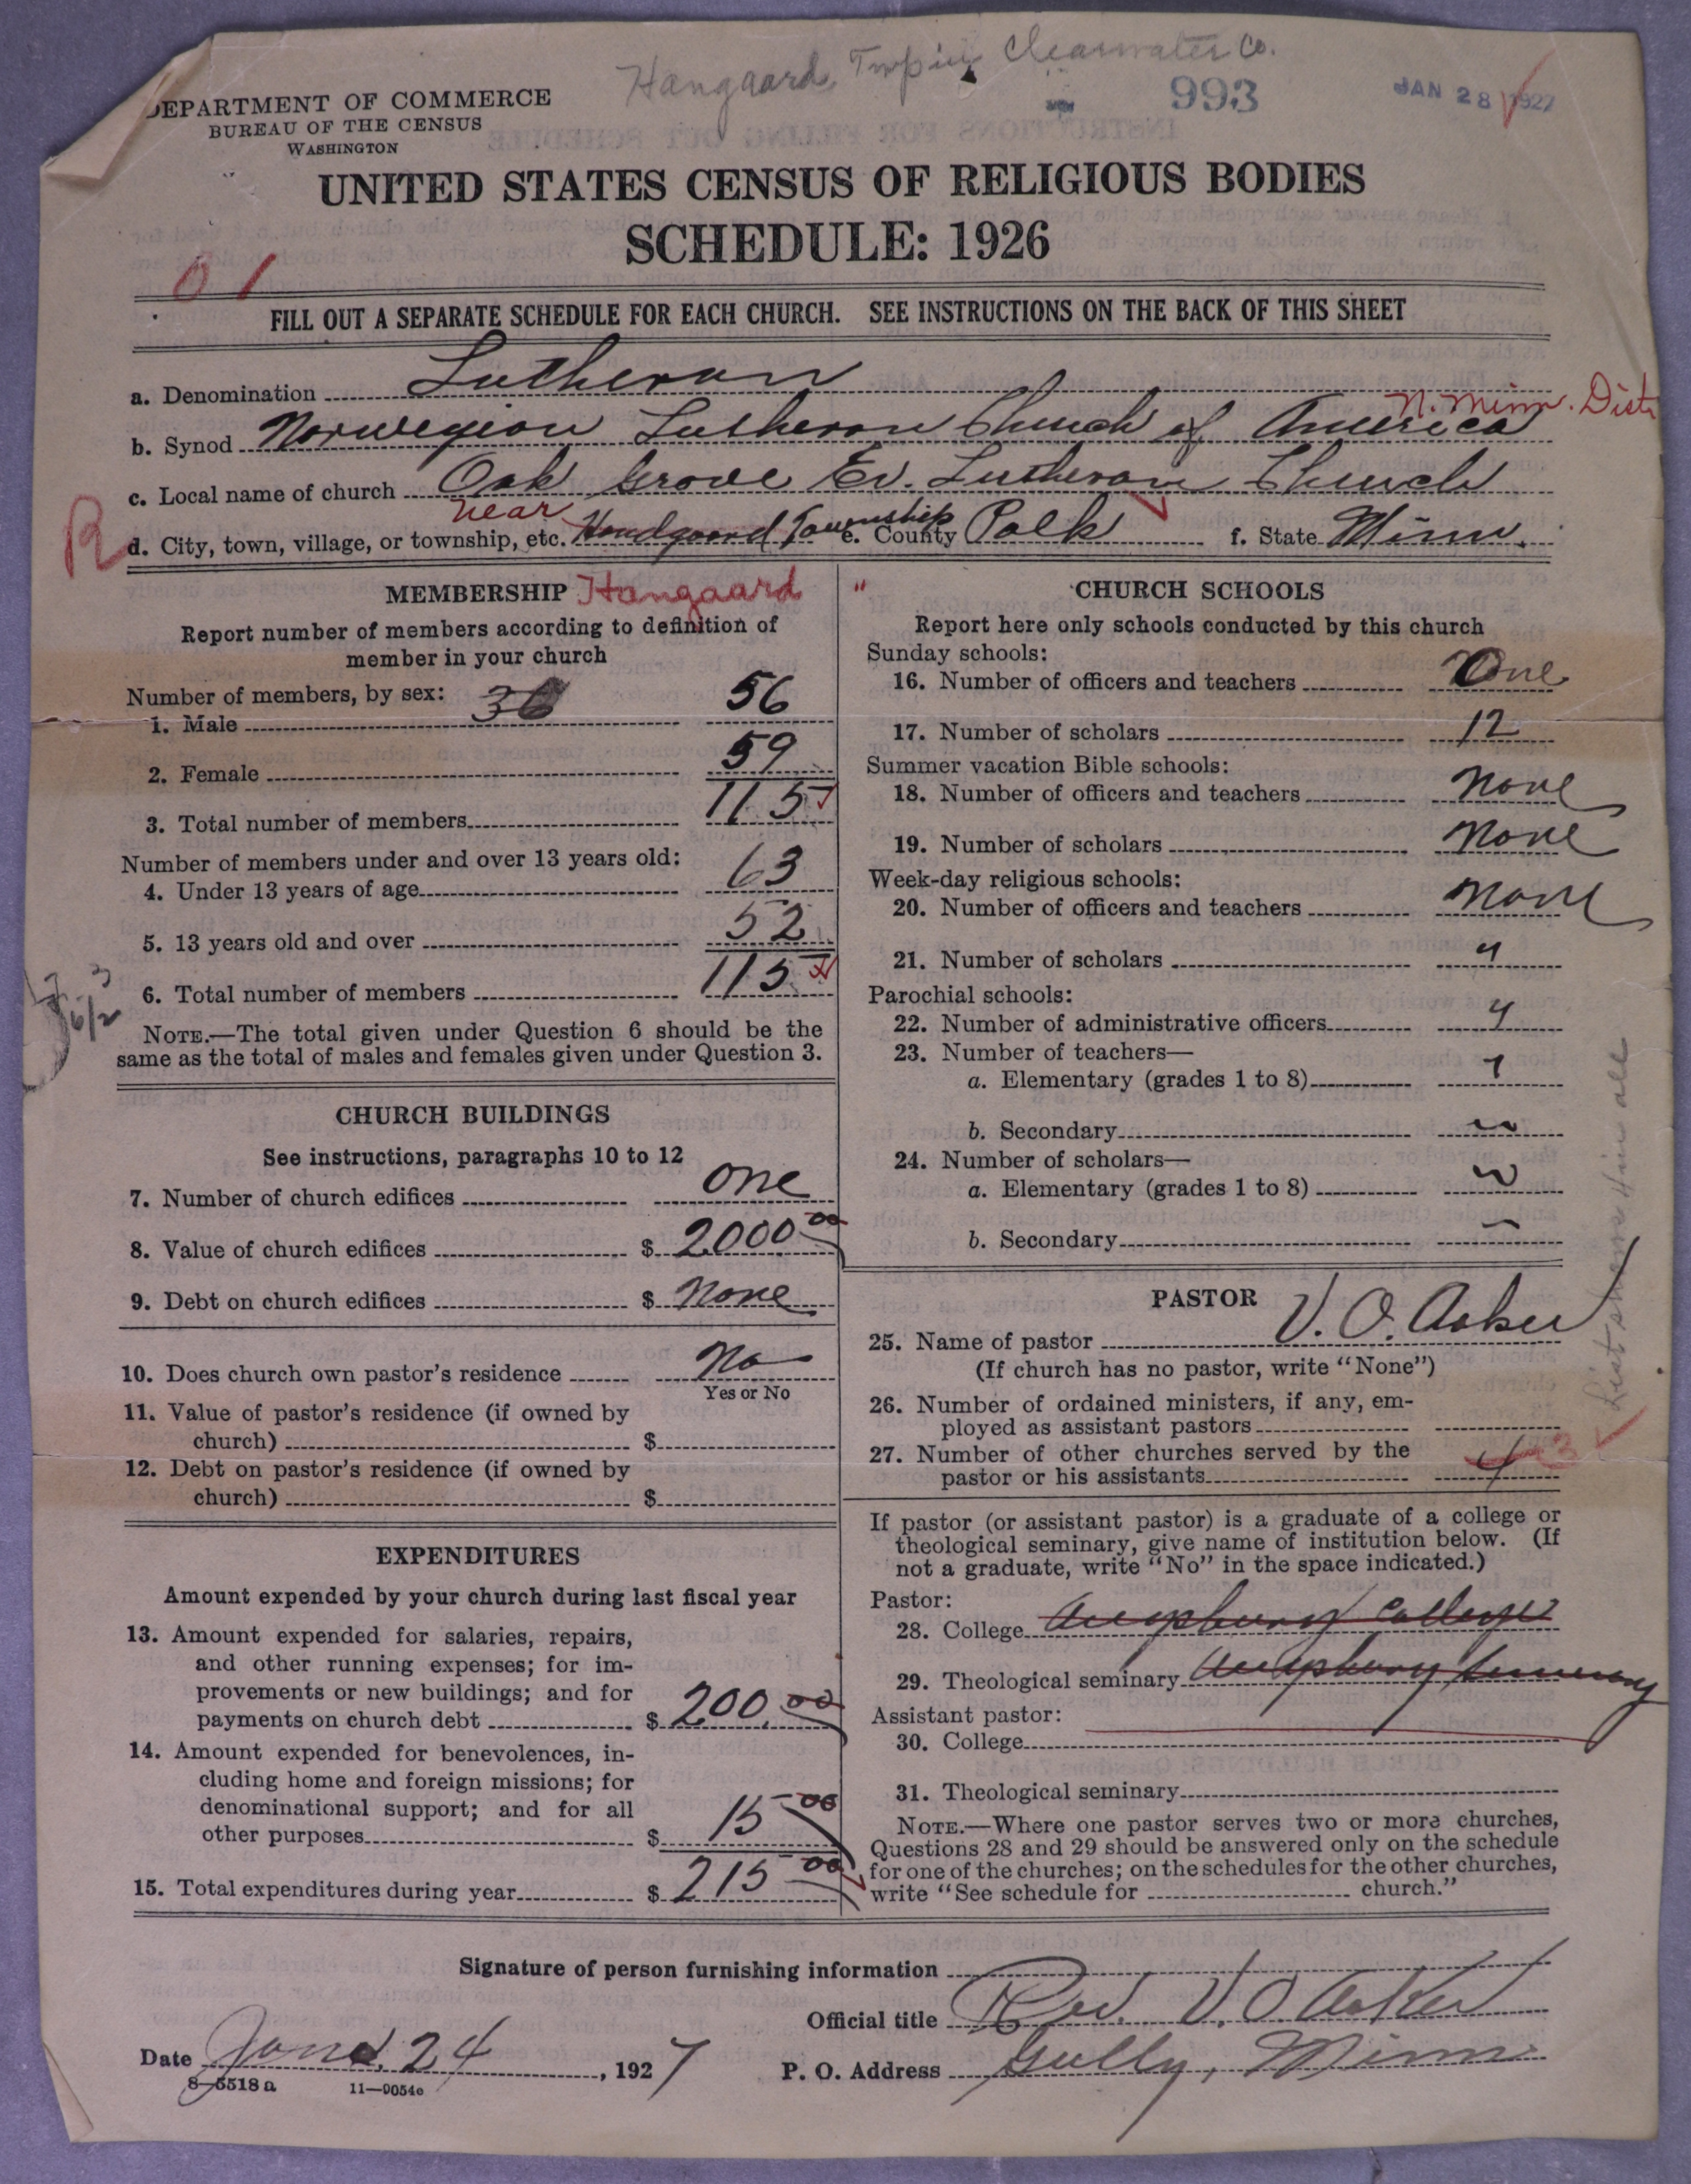 Hangaard Twp in Clearwater Co.
993
JAN 28 1927
DEPARTMENT OF COMMERCE
BUREAU OF THE CENSUS
WASHINGTON
UNITED STATES CENSUS OF RELIGIOUS BODIES
SCHEDULE: 1926
0 1
FILL OUT A SEPARATE SCHEDULE FOR EACH CHURCH. SEE INSTRUCTIONS ON THE BACK OF THIS SHEET
a. Denomination Lutheran
N. Minn. Dist
b. Synod Norwegian Lutheran Church of America
c. Local name of church Oak Grove Ev. Lutheran Church
R near
d. City, town, village, or township, etc. Handgaard Township e. County Polk f. State Minn.
MEMBERSHIP Hangaard "
Report number of members according to definition of
member in your church
Number of members, by sex:
1. Male 36 56
2. Female 59
3. Total number of members 115
Number of members under and over 13 years old:
4. Under 13 years of age 63
5. 13 years old and over 52
6. Total number of members 115
NOTE.—The total given under Question 6 should be the
same as the total of males and females given under Question 3.
CHURCH BUILDINGS
See instructions, paragraphs 10 to 12
7. Number of church edifices one
8. Value of church edifices $ 2000 00
9. Debt on church edifices $ None
10. Does church own pastor's residence No
Yes or No
11. Value of pastor's residence (if owned by
church) $
12. Debt on pastor's residence (if owned by
church) $
EXPENDITURES
Amount expended by your church during last fiscal year
13. Amount expended for salaries, repairs,
and other running expenses; for im-
provements or new buildings; and for
payments on church debt $ 200.00
14. Amount expended for benevolences, in-
cluding home and foreign missions; for
denominational support; and for all
other purposes $ 15 00
15. Total expenditures during year $ 215 00
CHURCH SCHOOLS
Report here only schools conducted by this church
Sunday schools:
16. Number of officers and teachers One
17. Number of scholars 12
Summer vacation Bible schools:
18. Number of officers and teachers None
19. Number of scholars None
Week-day religious schools:
20. Number of officers and teachers None
21. Number of scholars "
Parochial schools:
22. Number of administrative officers "
23. Number of teachers—
a. Elementary (grades 1 to 8) "
b. Secondary "
24. Number of scholars—
a. Elementary (grades 1 to 8) "
b. Secondary
PASTOR
25. Name of pastor V. O. Aaker
(If church has no pastor, write "None")
26. Number of ordained ministers, if any, em-
ployed as assistant pastors
27. Number of other churches served by the
pastor or his assistants 4 3
If pastor (or assistant pastor) is a graduate of a college or
theological seminary, give name of institution below. (If
not a graduate, write "No" in the space indicated.)
Pastor:
28. College Augsburg College
29. Theological seminary Augsburg Seminary
Assistant pastor:
30. College
31. Theological seminary
NOTE.—Where one pastor serves two or more churches,
Questions 28 and 29 should be answered only on the schedule
for one of the churches; on the schedules for the other churches,
write "See schedule for church."
List shows him all
Signature of person furnishing information
Official title Rev. V. O. Aaker
Date Jan. 24, 1927 P. O. Address Gully, Minn
8—5518 a 11—9054e